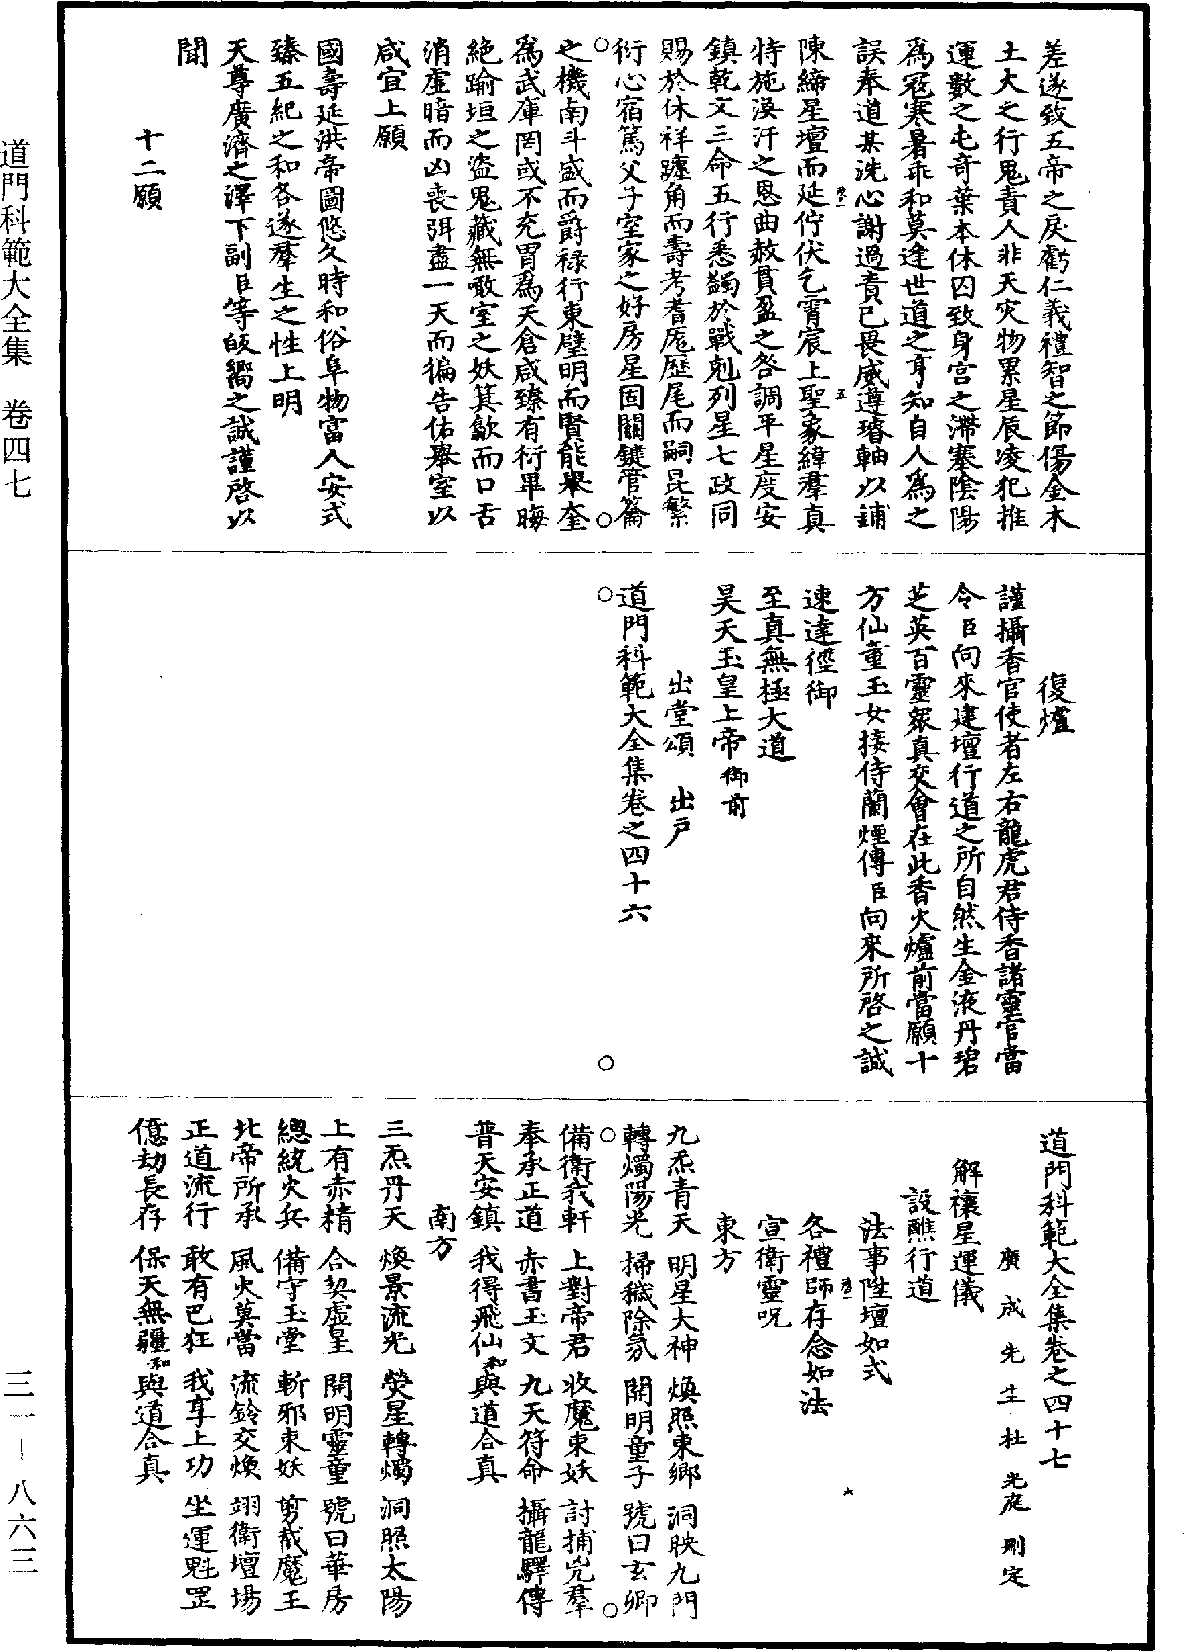 道門科範大全集　卷四七
差遂致五帝之戾虧仁義禮智之節傷金木
土火之行鬼責人非天灾物累星辰凌犯推
運數之屯竒葉本休囚致身宫之滯蹇陰陽
爲寇寒暑乖和莫逢世道之亨知自人爲之
誤奉道某洗心謝過責己畏威遵璿軸以鋪
陳締星壇而延佇伏乞霄宸上聖象緯羣真
特施渙汗之恩曲赦貫盈之咎調平星度安
鎮乾文三命五行悉蠲於戰剋列星七政同
賜於休祥躔角而壽考耆厖歷尾而嗣昆繁
衍心宿篤父子室家之好房星固關鍵管籥
之機南斗盛而爵禄行東壁明而賢能舉奎
爲武庫罔或不充胃爲天倉咸臻有衍畢晦
絶踰垣之盗鬼藏無噉室之妖箕歛而口舌
消虛暗而凶喪弭盡一天而徧告佑舉室以
咸宜上願
國壽延洪帝圖悠久時和俗阜物富人安式
臻五紀之和各遂羣生之性上明
天尊廣濟之澤下副臣等皈嚮之誠謹啓以
聞
十二願
復爐
謹攝香官使者左右龍虎君侍香諸靈官當
令臣向來建壇行道之所自然生金液丹碧
芝英百靈衆真交會在此香火爐前當願十
方仙童玉女接侍蘭煙傳臣向來所啓之誠
速達徑御
至真無極大道
昊天玉皇上帝御前
出堂頌　出戶
道門科範大全集卷之四十六
道門科範大全集卷之四十七
廣成先生杜光庭刪定
解禳星運儀
設醮行道
法事陞壇如式
各禮師存念如法
宣衛靈呪
東方
九炁青天　明星大神　煥照東鄉　洞映九門
轉燭陽光　掃穢除氛　開明童子　號曰玄卿
備衛我軒　上對帝君　收魔束妖　討捕兇羣
奉承正道　赤書玉文　九天符命　攝龍驛傳
普天安鎮　我得飛仙和與道合真
南方
三炁丹天　煥景流光　熒星轉燭　洞照太陽
上有赤精　合契虛皇　開明靈童　號曰華房
總統火兵　備守玉堂　斬邪束妖　剪截魔王
北帝所承　風火莫當　流鈴交煥　翊衛壇場
正道流行　敢有巴狂　我享上功　坐運魁罡
億劫長存　保天無疆和與道合真
三一－八六三